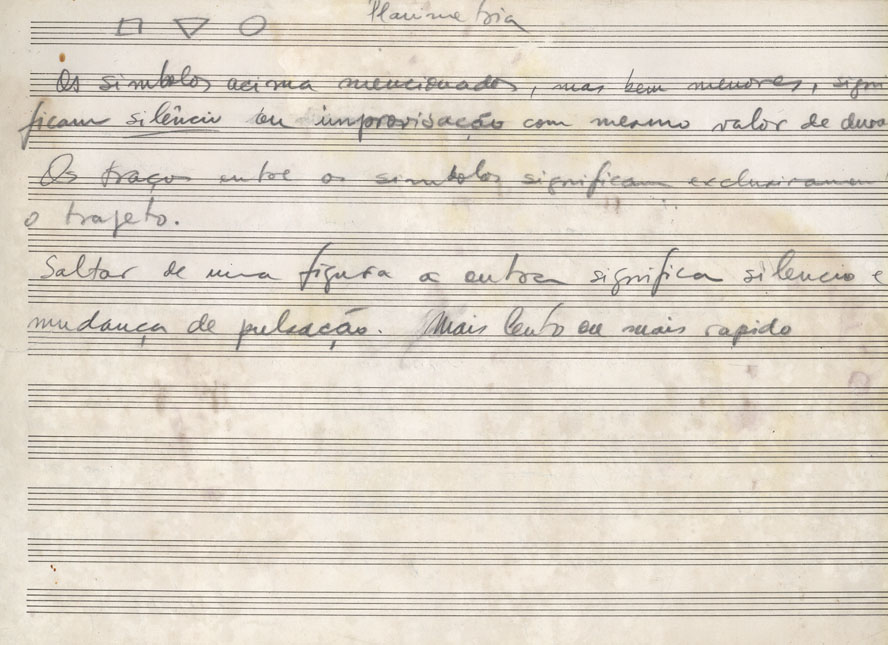 Planimetria
Os simbolos acima mencionados, mas bem menores, signi
ficam silêncio ou improvisação com mesmo valor de dura
Os traços entre os simbolos significam exclusivament
o trajeto.
Saltar de uma figura a outra significa silencio e
mudança de pulsação. Mais lento ou mais rapido